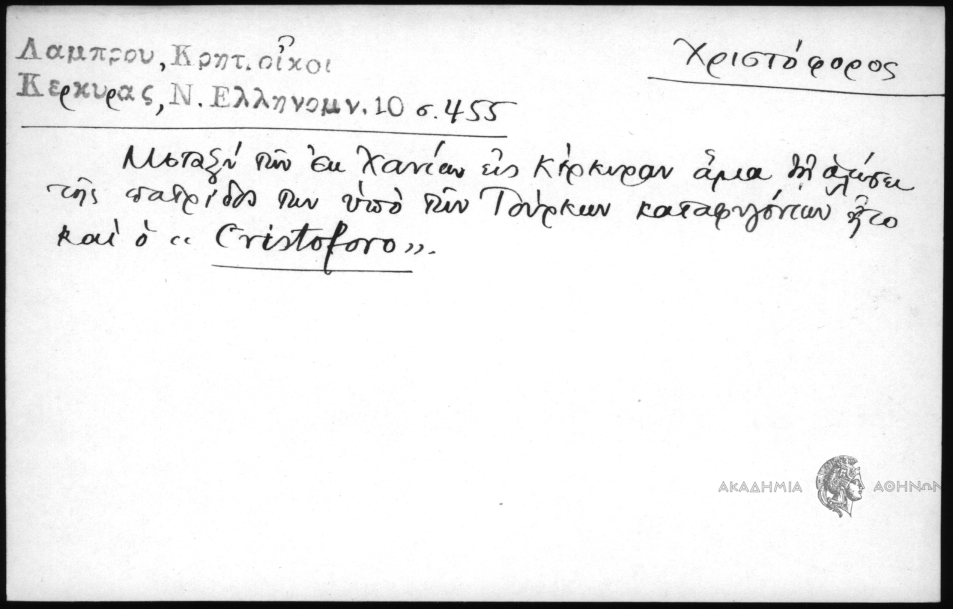 Λαμπρου, Κρητ. οἶκοι
Κερκυρας, Ν. Ελληνομν. 10 σ. 455
Χριστόφορος
Μεταξύ τῶν ἐκ Χανίων εἰς Κέρκυραν ἅμα τῇ ἁλώσει
τῆς πατρίδος των ὑπὸ τῶν Τούρκων καταφυγόντων ἦτο
καὶ ὁ « Cristoforo ».
ΑΚΑΔΗΜΙΑ ΑΘΗΝΩΝ